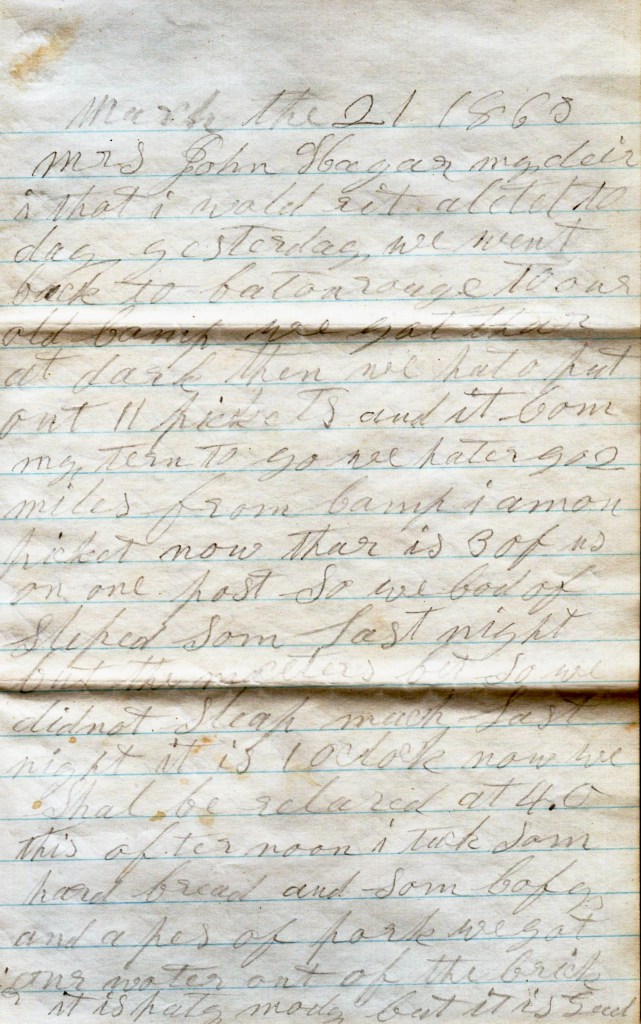 March the 21 1863
Mrs John Hagar my deir
i that i wold rit a litel to
day yesterday we went
back to batonrouge to our
old Camp we got thar
at dark then we hat o put
out 11 pickets and it Com
my tern to go we hater go 2
miles from Camp i am on
picket now thar is 3 of us
on one post So we Cod of
Sleped Som Last night
but the so we
did not Sleap much Last
night it is 1 oclock now we
Shal be relaced at 4.0
this after noon i tuk Som
hard bread and Som Cofey
and a pes of pork we got
our water out of the brick
it is paty mody but it is